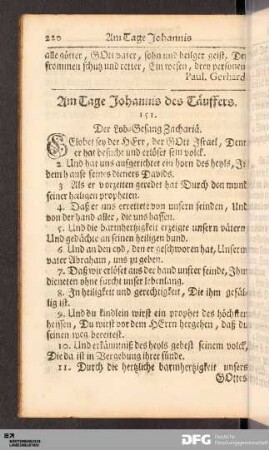 220 Am Tage Johannis
alle götter, GOtt vater, sohn und heilger geist, Der
frommen schutz und retter, Ein wesen, drey personen
Paul. Gerhard
Am Tage Johannis des Täuffers.
151.
Der Lob-Gesang Zachariä.
GElobet sey der HErr, der GOtt Israel, Denn
er hat besucht und erlöset sein volck.
2. Und hat uns aufgerichtet ein horn des heyls, In
dem hause seines dieners Davids.
3. Als er vorzeiten geredet hat Durch den mund
seiner heiligen propheten.
4. Daß er uns errettete von unsern feinden, Und
von der hand aller, die uns hassen.
5. Und die barmhertzigkeit erzeigte unsern vätern
Und gedächte an seinen heiligen bund.
6. Und an den eyd, den er geschworen hat, Unserm
vater Abraham, uns zu geben.
7. Daß wir erlöset aus der hand unsrer feinde, Ihm
dieneten ohne furcht unser lebenlang.
8. In heiligkeit und gerechtigkeit, Die ihm gefäl-
lig ist.
9. Und du kindlein wirst ein prophet des höchsten
heissen, Du wirst vor dem HErrn hergehen, daß du
seinen weg bereitest.
10. Und erkänntniß des heyls gebest seinem volck,
Die da ist in Vergebung ihrer sünde.
11. Durch die hertzliche barmhertzigkeit unsers
GOttes
DFG Deutsche
Forschungsgemeinschaft